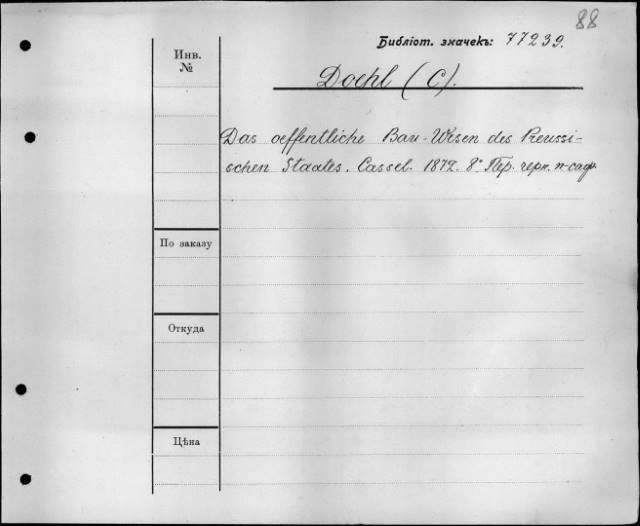 88
Библіот. значекъ: 77239.
Инв.
№
Doehl (C).
Das oeffentliche Bau-Wesen des Preussi-
schen Staates. Cassel. 1872. 8° Пер. черн. п-сафр.
По заказу
Откуда
Цѣна